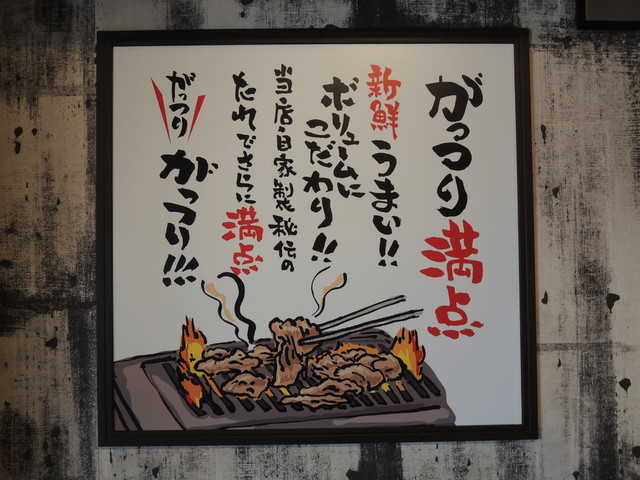 がっつり満点
新鮮うまい!!
ボリュームに
こだわり!!
当店自家製秘伝の
たれでさらに満点
がっつり
がっつり!!!